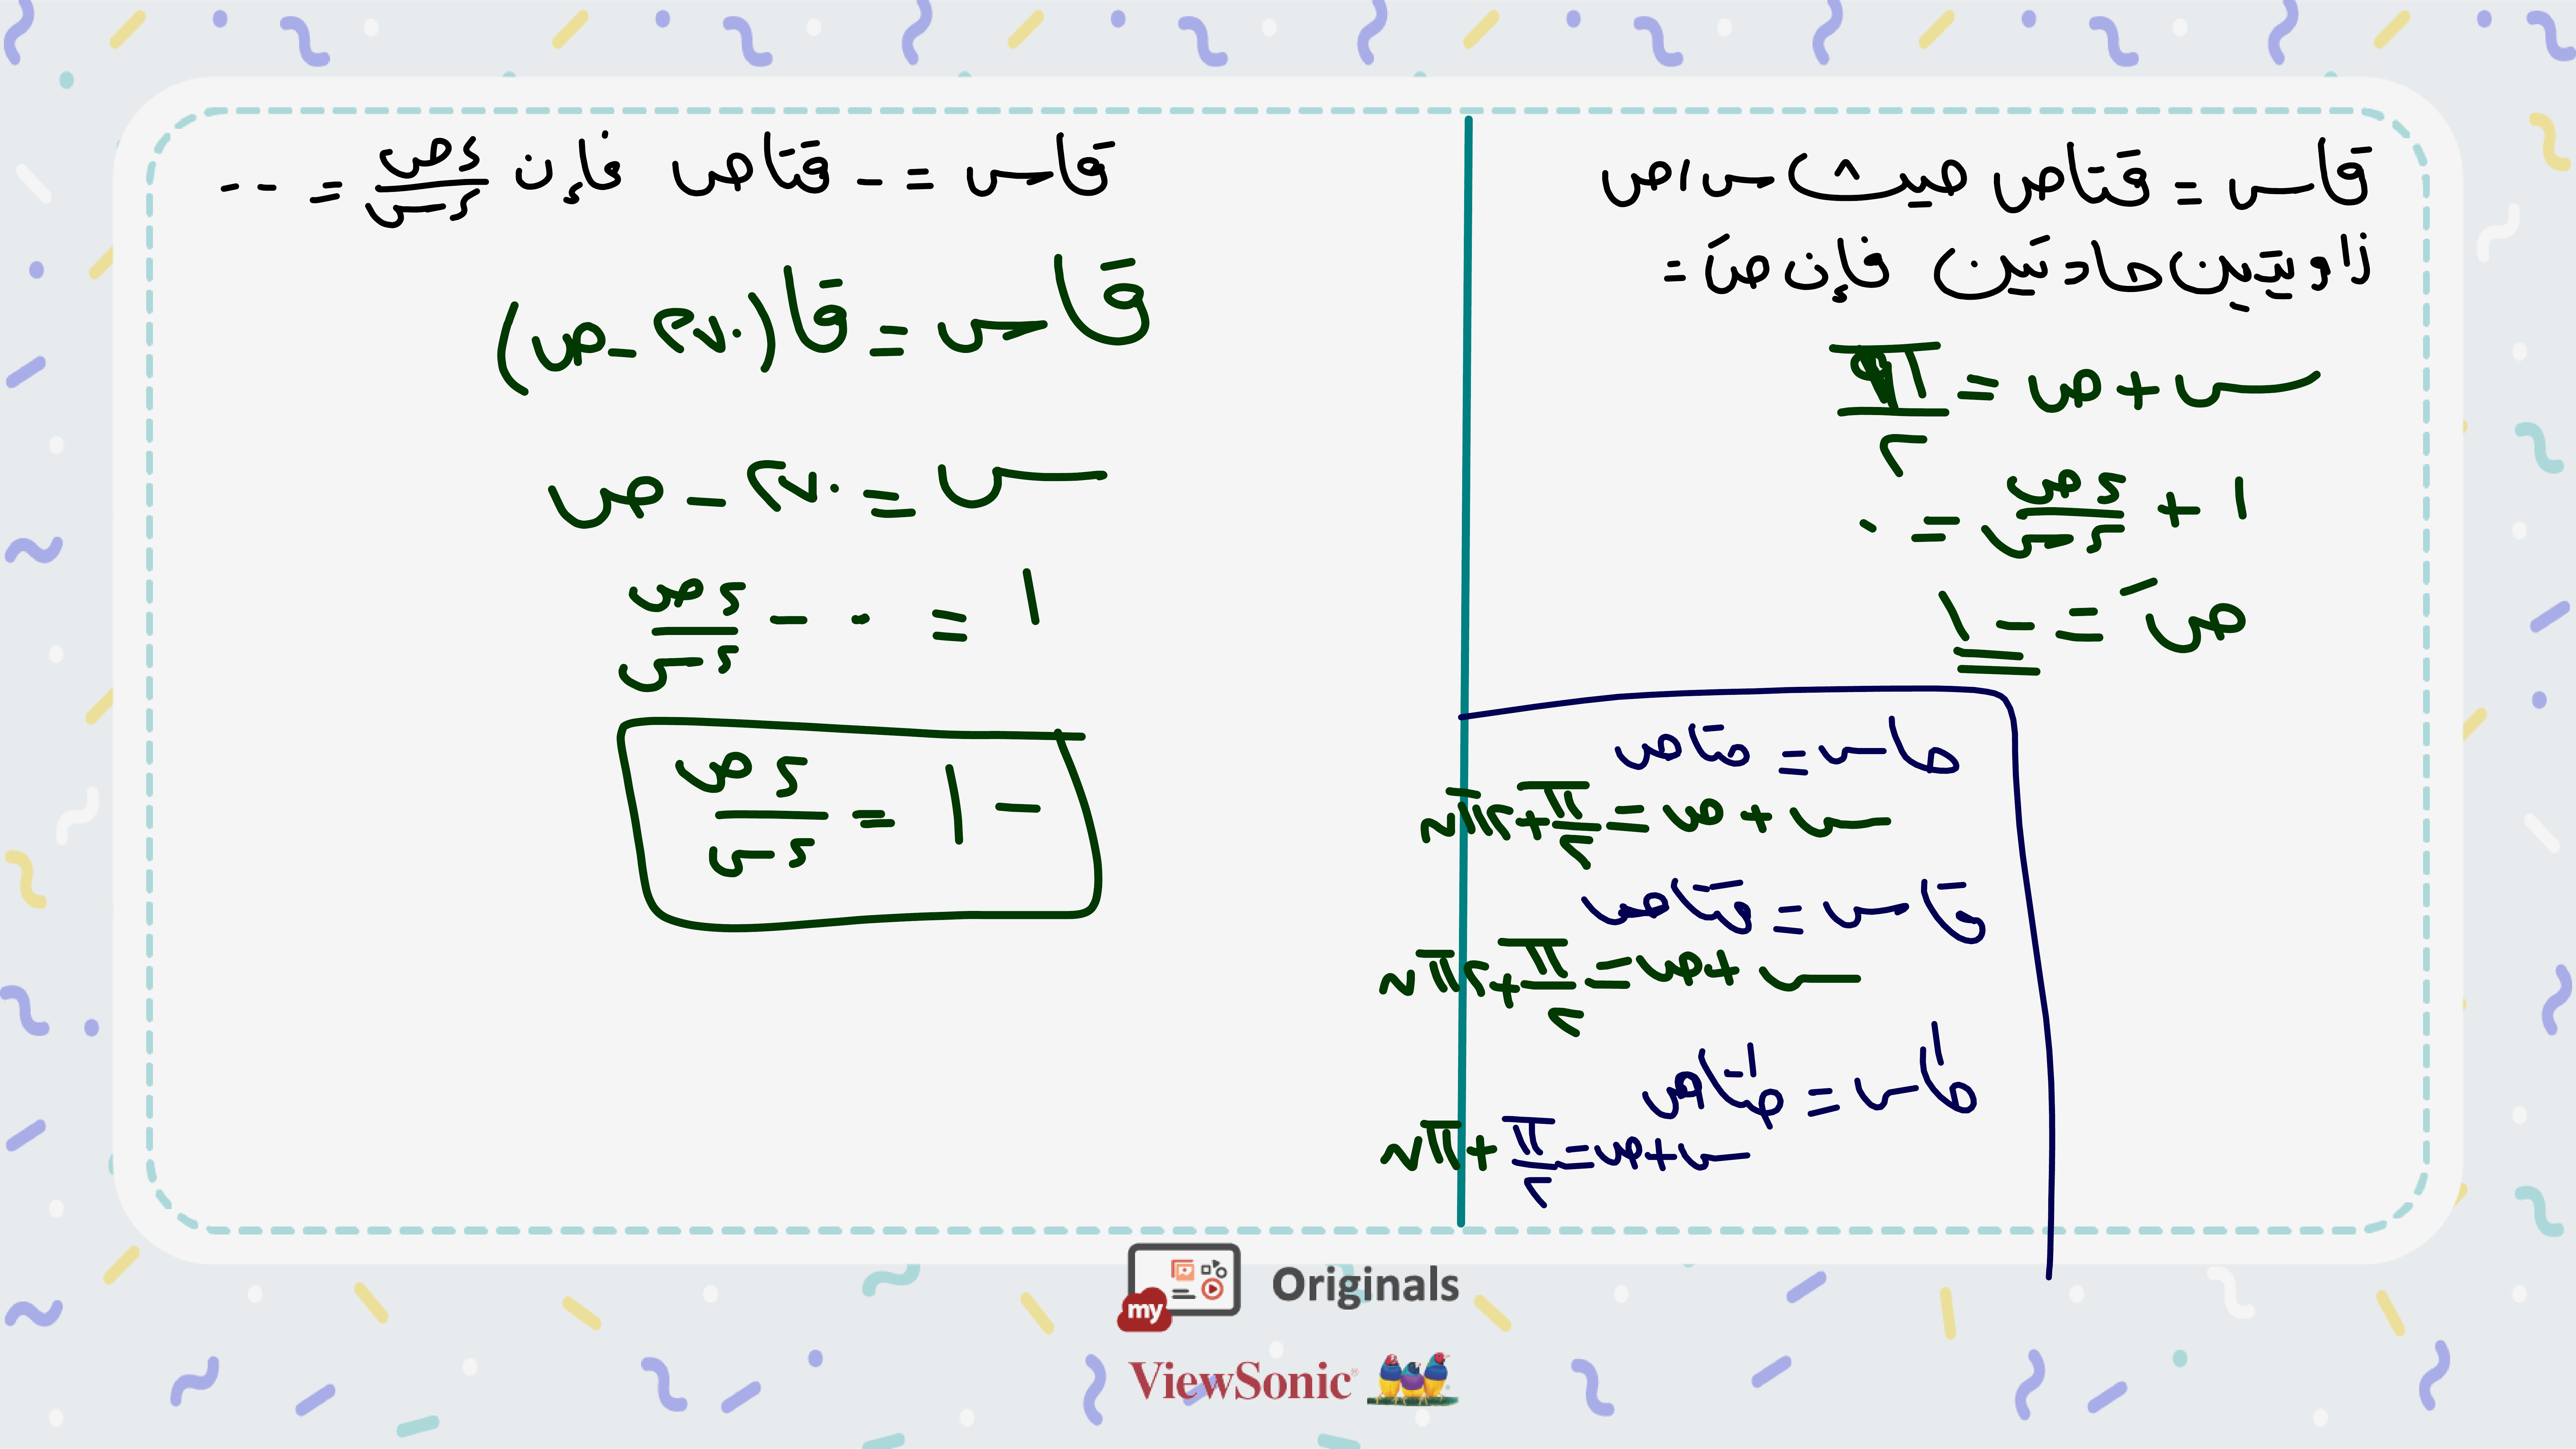 قاس = قتاص حيث س ، ص
زاويتين حادتين فإن صَ =
س + ص = π/٢
١ + ءص/ءس = ٠
صَ = - ١
حاس = حتاص
س + ص = π/٢ + ٢πن
قاس = قتاص
س + ص = π/٢ + ٢πن
طاس = طتاص
س + ص = π/٢ + πن
قاس = - قتاص فإن ءص/ءس = ...
قاس = قا(٢٧٠ - ص)
س = ٢٧٠ - ص
١ = ٠ - ءص/ءس
- ١ = ءص/ءس
my Originals
ViewSonic